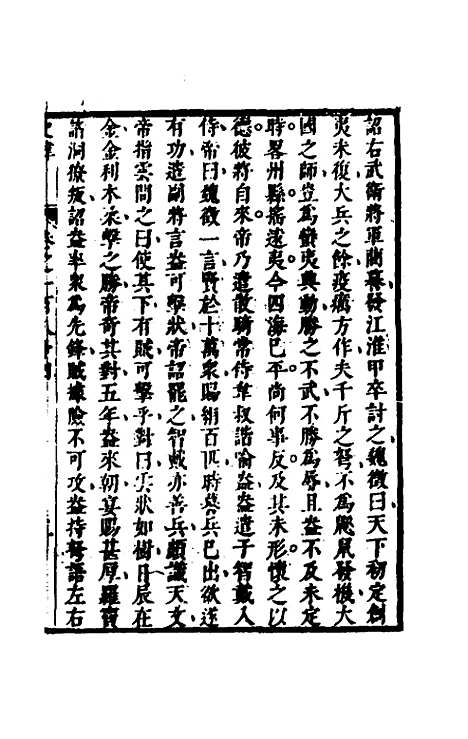 詔右武衛將軍藺暮發江淮甲卒討之魏徵曰天下初定創
夷未復大兵之餘疫癘方作夫千斤之弩不為鼷鼠發機大
國之師豈為蠻夷興動勝之不武不勝為辱且盎不及未定
時畧州縣搖遠夷今四海巳平尚何事反及其未形懷之以
德彼將自來帝乃遣散騎常侍韋叔諧喻盎盎遣子智戴入
侍帝曰魏徵一言賢於十萬衆賜絹百匹時暮兵巳出欲遂
有功遣副將言盎可擊狀帝詔罷之智戴亦善兵頗識天文
帝指雲問之曰使其下有賊可擊乎對曰雲狀如樹日辰在
金金利木柔擊之勝帝奇其對五年盎來朝宴賜甚厚羅竇
諸洞獠叛詔盎率衆為先鋒賊據險不可攻盎持弩語左右
史緯 卷之一百